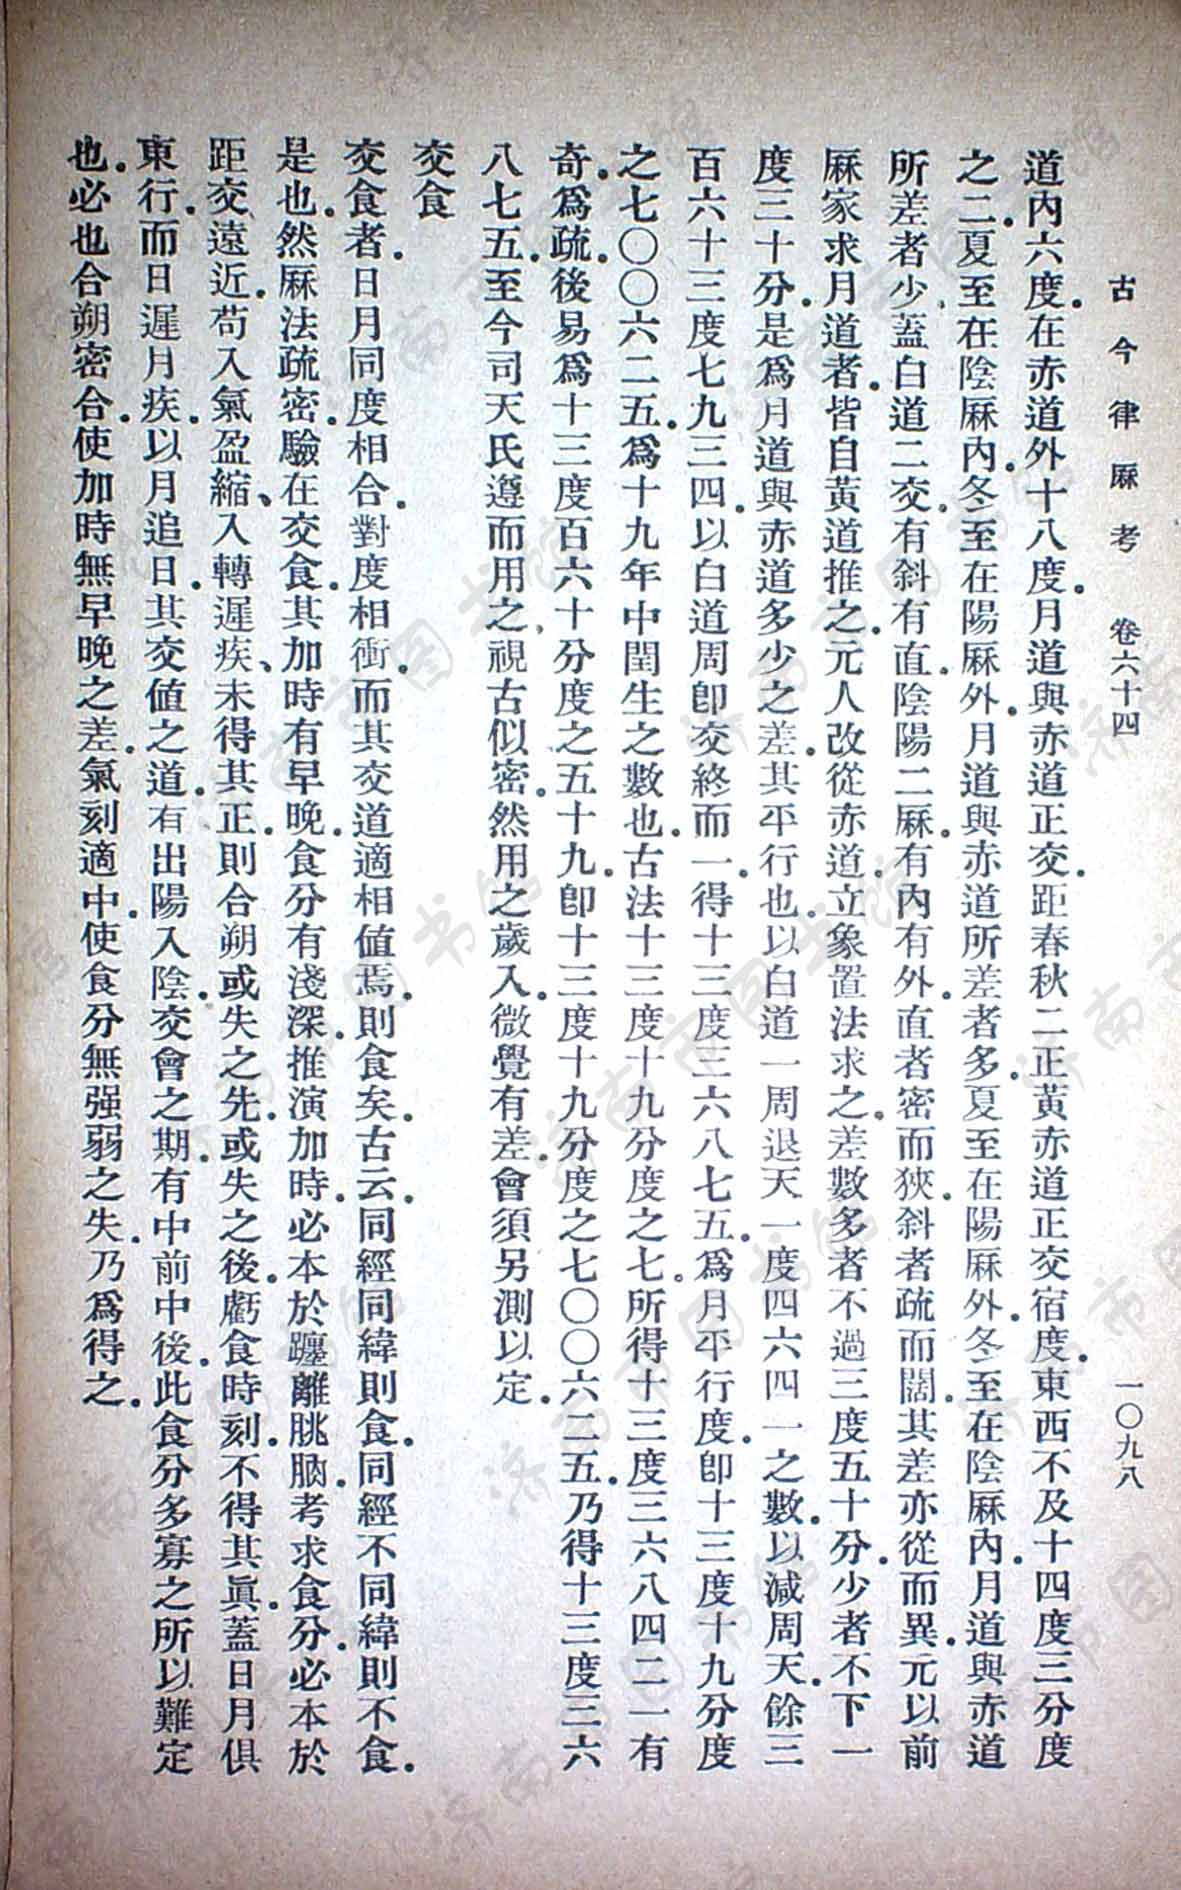 古今律厤考 卷六十四 一〇九八
道內六度。在赤道外十八度。月道與赤道正交。距春秋二正黃赤道正交宿度。東西不及十四度三分度
之二。夏至在陰厤內。冬至在陽厤外。月道與赤道所差者多。夏至在陽厤外。冬至在陰厤內。月道與赤道
所差者少。蓋白道二交。有斜有直。陰陽二厤。有內有外。直者密而狹。斜者疏而闊。其差亦從而異。元以前
厤家求月道者。皆自黃道推之。元人改從赤道。立象置法求之。差數多者不過三度五十分。少者不下一
度三十分。是爲月道與赤道多少之差。其平行也。以白道一周退天一度四六四一之數。以減周天。餘三
百六十三度七九三四。以白道周卽交終而一。得十三度三六八七五。爲月平行度。卽十三度十九分度
之七〇〇六二五。爲十九年中閏生之數也。古法十三度十九分度之七。所得十三度三六八四二一有
奇。爲疏。後易爲十三度百六十分度之五十九。卽十三度十九分度之七〇〇六二五。乃得十三度三六
八七五。至今司天氏遵而用之、視古似密。然用之歲入。微覺有差。會須另測以定。
交食
交食者。日月同度相合。對度相衝。而其交道適相值焉。則食矣。古云。同經同緯則食。同經不同緯則不食。
是也。然厤法疏密。驗在交食。其加時有早晚。食分有淺深。推演加時。必本於躔離朓朒。考求食分。必本於
距交遠近。苟入氣盈縮、入轉遲疾、未得其正。則合朔或失之先。或失之後。虧食時刻。不得其眞。蓋日月俱
東行。而日遲月疾。以月追日。其交値之道。有出陽入陰。交會之期。有中前中後。此食分多寡之所以難定
也。必也合朔密合。使加時無早晚之差。氣刻適中。使食分無强弱之失。乃爲得之。